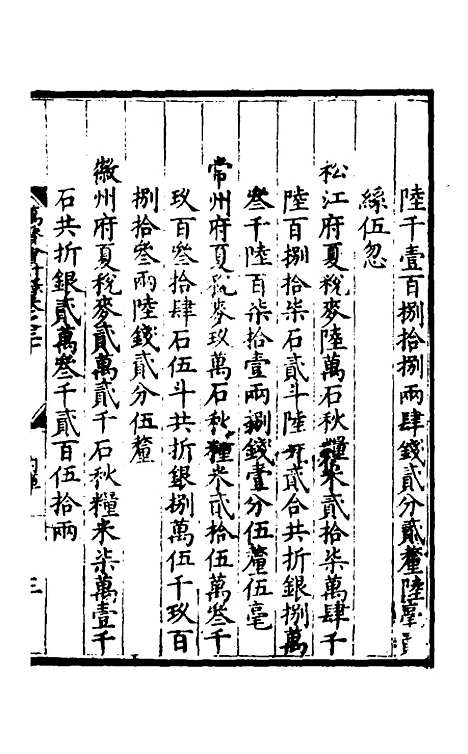 陸千壹百捌拾捌兩肆錢貳分貳釐陸毫貳
絲伍忽
松江府夏稅麥陸萬石秋糧米貳拾柒萬肆千
陸百捌拾柒石貳斗陸升貳合共折銀捌萬
叁千陸百柒拾壹兩捌錢壹分伍釐伍毫
常州府夏稅麥玖萬石秋糧米貳拾伍萬叁千
玖百叁拾肆石伍斗共折銀捌萬伍千玖百
捌拾叁兩陸錢貳分伍釐
徽州府夏稅麥貳萬貳千石秋糧米柒萬壹千
石共折銀貳萬叁千貳百伍拾兩
萬曆會計錄卷之
三